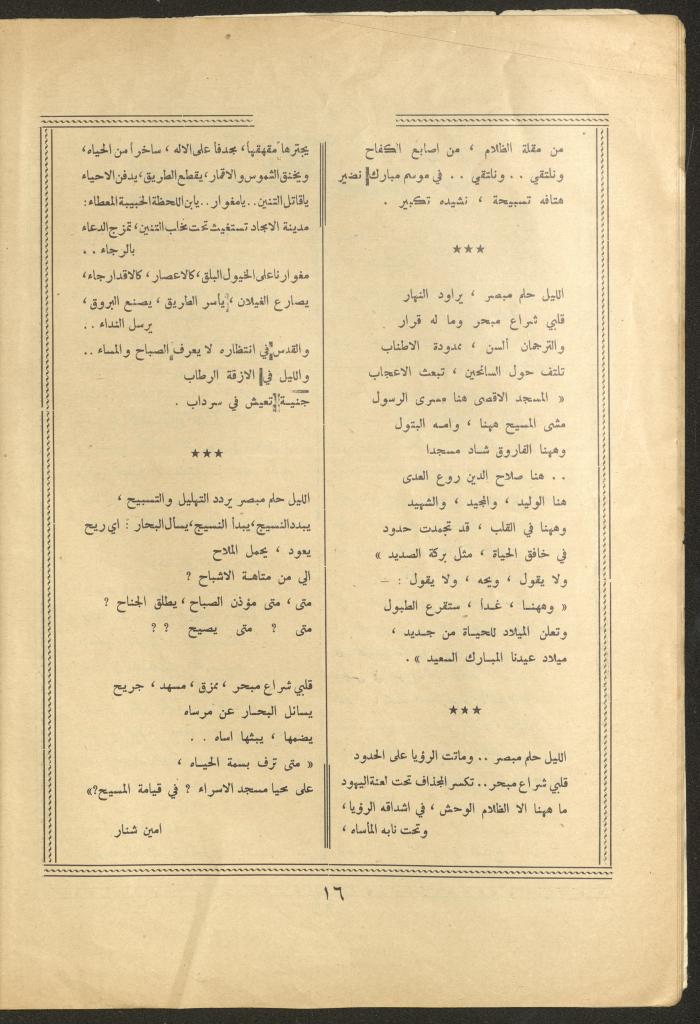 من مقلة الظلام ، من اصابع الكفاح
ونلتقي . . ونلتقي . . في موسم مبارك نضير
هتافه تسبيحة ، نشيده تكبير .
★★★
الليل حلم مبصر ، يراود النهار
قلبي شراع مبحر وما له قرار
والترجمان ألسن ، ممدودة الاطناب
تلتف حول السائحين ، تبعث الاعجاب
« المسجد الاقصى هنا مسرى الرسول
مشى المسيح ههنا ، وامه البتول
وههنا الفاروق شاد مسجدا
. . هنا صلاح الدين روع العدى
هنا الوليد ، والمجيد ، والشهيد
وههنا في القلب ، قد تجمدت حدود
في خافق الحياة ، مثل بركة الصديد »
ولا يقول ، ويحه ، ولا يقول : —
« وههنا ، غداً ، ستقرع الطبول
وتعلن الميلاد للحياة من جديد ،
ميلاد عيدنا المبارك السعيد » .
★★★
الليل حلم مبصر . . وماتت الرؤيا على الحدود
قلبي شراع مبحر . . تكسر المجذاف تحت لعنة اليهود
ما ههنا الا الظلام الوحش ، في اشداقه الرؤيا ،
وتحت نابه المأساه ،
يجترها مقهقهاً ، مجدفاً على الاله ، ساخراً من الحياه ،
ويخنق الشموس والاقمار ، يقطع الطريق ، يدفن الاحياء
ياقاتل التنين . . يامغوار . . يابن اللحظة الخبيبة المعطاء :
مدينة الامجاد تستغيث تحت مخلب التنين ، تمزج الدعاء
بالرجاء . .
مغوارنا على الخيول البلق ، كالاعصار ، كالاقدار جاء ،
يصارع الغيلان ، ياسر الطريق ، يصنع البروق ،
يرسل النداء . .
والقدس في انتظاره لا يعرف الصباح والمساء . .
والليل في الازقة الرطاب
جنية تعيش في سرداب .
★★★
الليل حلم مبصر يردد التهليل والتسبيح ،
يبدد النسيج ، يبدأ النسيج ، يسأل البحار : اي ريح
يعود ، يحمل الملاح
الى من متاهة الاشباح ؟
متى ، متى مؤذن الصباح ، يطلق الجناح ؟
متى ؟ متى يصيح ؟ ؟
قلبي شراع مبحر ، ممزق ، مسهد ، جريح
يسائل البحار عن مرساه
يضمها ، يبثها اساه . .
« متى ترف بسمة الحياه ،
على محيا مسجد الاسراء ؟ في قيامة المسيح ؟»
امين شنار
١٦